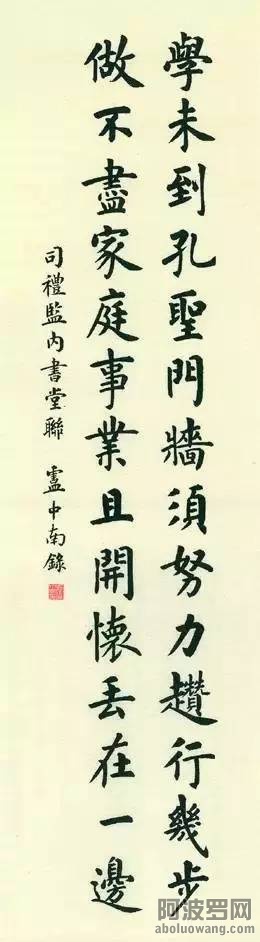 學未到孔聖門牆須努力趲行幾步
做不盡家庭事業且開懷丟在一邊
司禮監內書堂聯 盧中南錄
阿波罗网
aboluowang.com